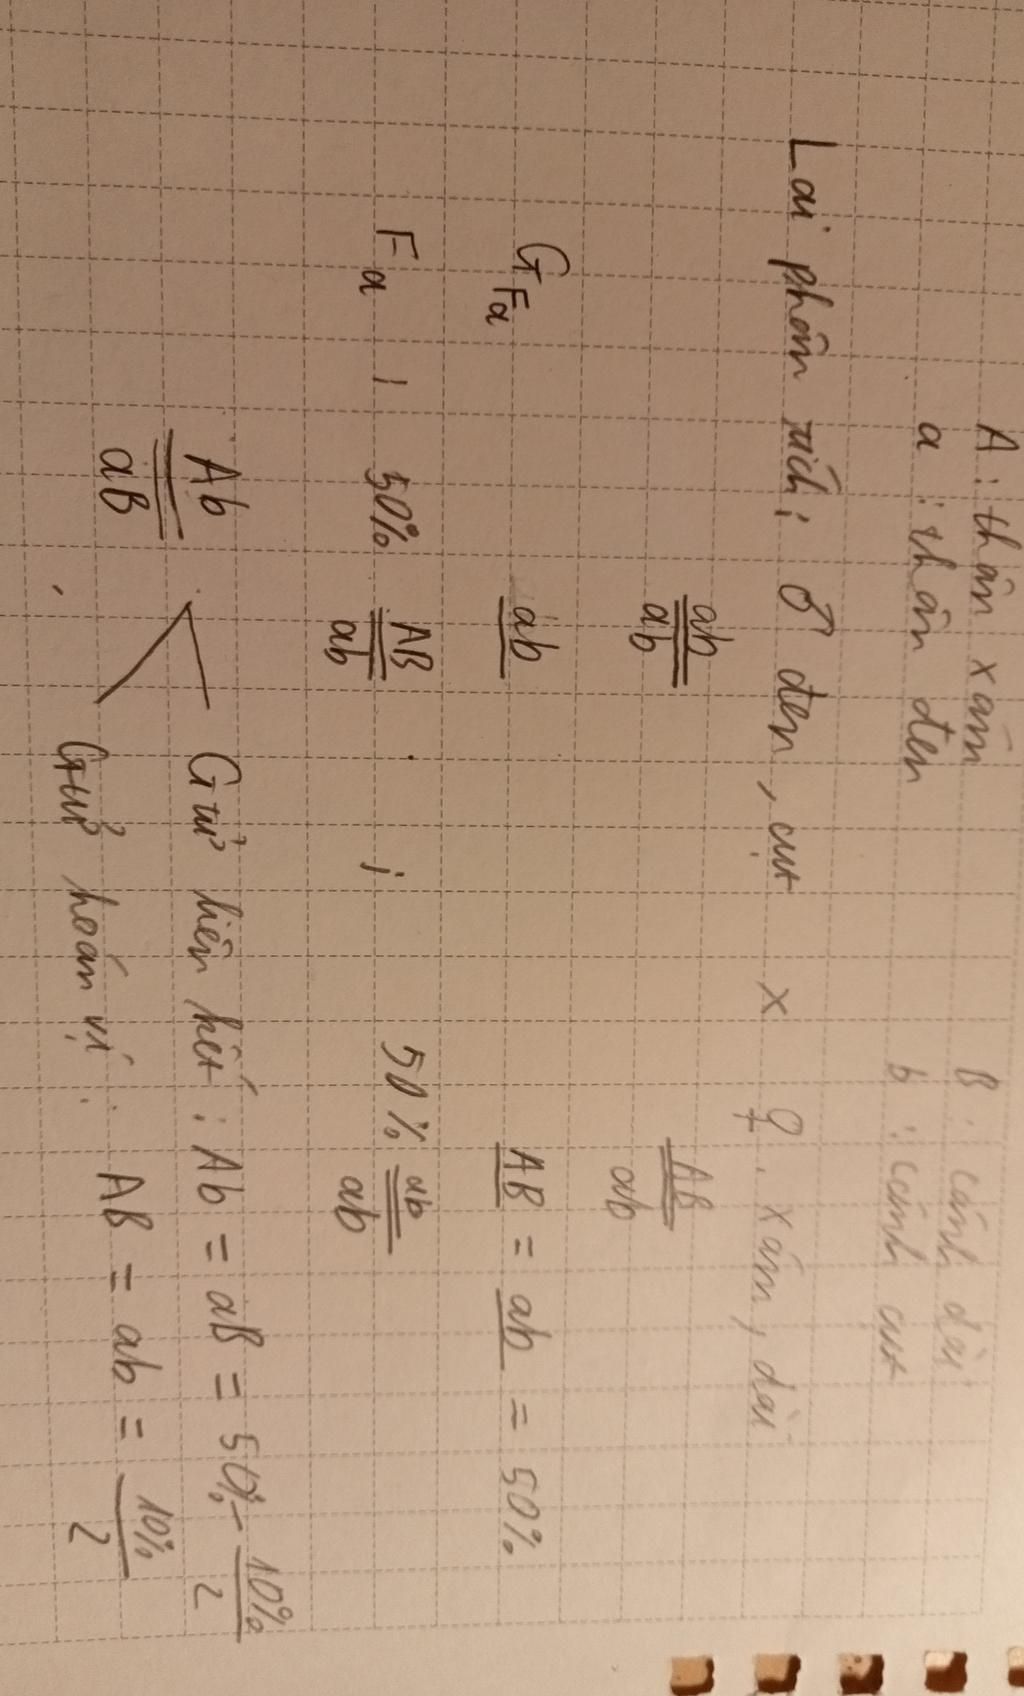 A : thân xám B : cánh dài
a : thân đen b : cánh cụt
Lai phân tích : ♂ đen, cụt x ♀ xám, dài
ab AB
ab ab
G Fa ab AB = ab = 50%
Fa : 50% AB ; 50% ab
ab ab
Ab Gtử liên kết : Ab = aB = 50% - 10%
aB 2
Gtử hoán vị : AB = ab = 10%
2